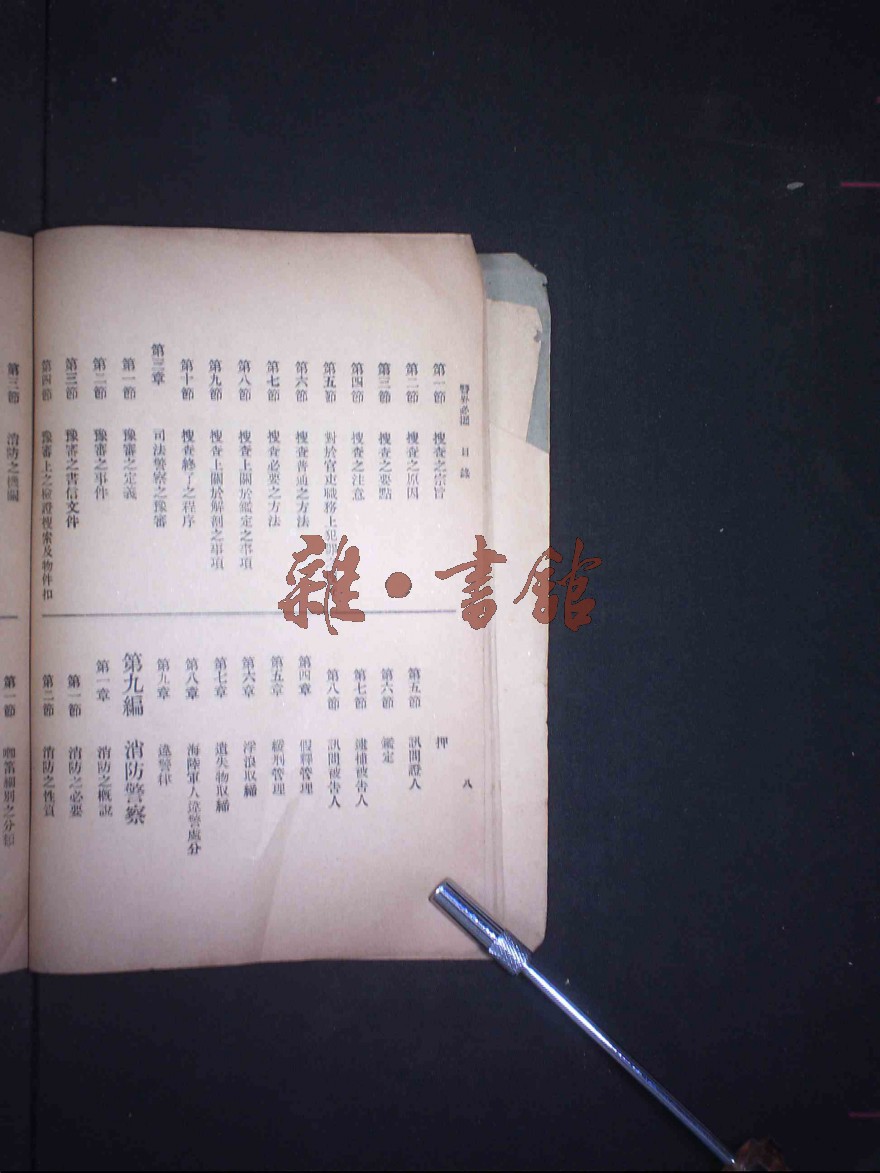 警界必携 目錄 八
第一節 搜查之宗旨
第二節 搜查之原因
第三節 搜查之要點
第四節 搜查之注意
第五節 對於官吏職務上犯罪
第六節 搜查普通之方法
第七節 搜查必要之方法
第八節 搜查上關於鑑定之事項
第九節 搜查上關於解剖之事項
第十節 搜查終了之程序
第三章 司法警察之豫審
第一節 豫審之定義
第二節 豫審之事件
第三節 豫審之書信文件
第四節 豫審上之檢證搜索及物件扣
押
第五節 訊問證人
第六節 鑑定
第七節 逮捕被告人
第八節 訊問被告人
第四章 假釋管理
第五章 緩刑管理
第六章 浮浪取締
第七章 遺失物取締
第八章 海陸軍人違警處分
第九章 違警律
第九編 消防警察
第一章 消防之概說
第一節 消防之必要
第二節 消防之性質
第三節 消防之機關
第一節 之分類
雜·書館